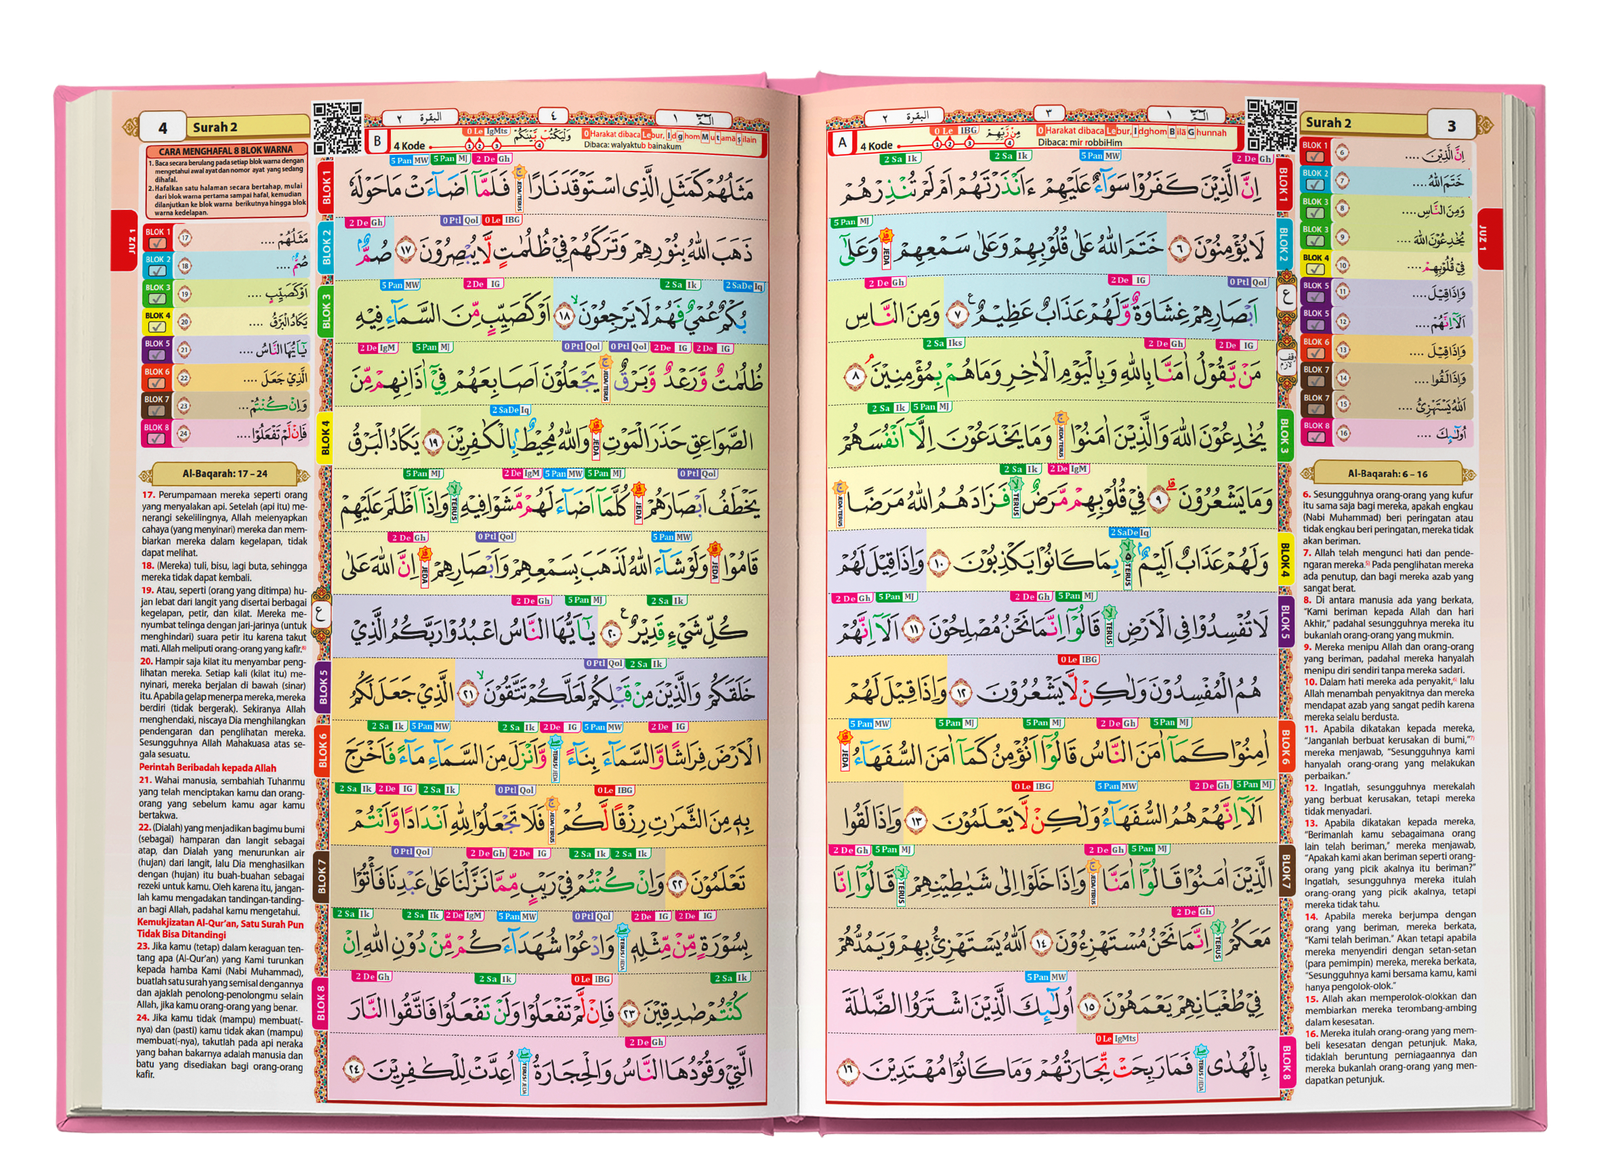 Surah 2
3
BLOK 1 ٦ اِنَّ الَّذِيْنَ ....
BLOK 2 ٧ خَتَمَ اللّٰهُ ....
BLOK 3 ٨ وَمِنَ النَّاسِ ....
BLOK 3 ٩ يُخٰدِعُوْنَ اللّٰهَ ....
BLOK 4 ١٠ فِيْ قُلُوْبِهِمْ ....
BLOK 5 ١١ وَاِذَا قِيْلَ ....
BLOK 5 ١٢ اَلَآ اِنَّهُمْ ....
BLOK 6 ١٣ وَاِذَا قِيْلَ ....
BLOK 7 ١٤ وَاِذَا لَقُوا ....
BLOK 7 ١٥ اَللّٰهُ يَسْتَهْزِئُ ....
BLOK 8 ١٦ اُولٰۤىِٕكَ ....
JUZ 1
البقرة ٢
٣
الۤمّۤ ١
A
4 Kode
0 Le IBG
مِنْ رَّبِّهِمْ
0 Harakat dibaca Lebur, Idghom Bilā Ghunnah
Dibaca: mir robbiHim
اِنَّ الَّذِيْنَ كَفَرُوْا سَوَاۤءٌ عَلَيْهِمْ ءَاَنْذَرْتَهُمْ اَمْ لَمْ تُنْذِرْهُمْ
لَا يُؤْمِنُوْنَ ٦ خَتَمَ اللّٰهُ عَلٰى قُلُوْبِهِمْ وَعَلٰى سَمْعِهِمْ وَعَلٰٓى
اَبْصَارِهِمْ غِشَاوَةٌ وَّلَهُمْ عَذَابٌ عَظِيْمٌ ٧ وَمِنَ النَّاسِ
مَنْ يَّقُوْلُ اٰمَنَّا بِاللّٰهِ وَبِالْيَوْمِ الْاٰخِرِ وَمَا هُمْ بِمُؤْمِنِيْنَ ٨
يُخٰدِعُوْنَ اللّٰهَ وَالَّذِيْنَ اٰمَنُوْا وَمَا يَخْدَعُوْنَ اِلَّآ اَنْفُسَهُمْ
وَمَا يَشْعُرُوْنَ ٩ فِيْ قُلُوْبِهِمْ مَّرَضٌ فَزَادَهُمُ اللّٰهُ مَرَضًا
وَلَهُمْ عَذَابٌ اَلِيْمٌ بِمَا كَانُوْا يَكْذِبُوْنَ ١٠ وَاِذَا قِيْلَ لَهُمْ
لَا تُفْسِدُوْا فِى الْاَرْضِ قَالُوْٓا اِنَّمَا نَحْنُ مُصْلِحُوْنَ ١١ اَلَآ اِنَّهُمْ
هُمُ الْمُفْسِدُوْنَ وَلٰكِنْ لَّا يَشْعُرُوْنَ ١٢ وَاِذَا قِيْلَ لَهُمْ
اٰمِنُوْا كَمَآ اٰمَنَ النَّاسُ قَالُوْٓا اَنُؤْمِنُ كَمَآ اٰمَنَ السُّفَهَاۤءُ
اَلَآ اِنَّهُمْ هُمُ السُّفَهَاۤءُ وَلٰكِنْ لَّا يَعْلَمُوْنَ ١٣ وَاِذَا لَقُوا
الَّذِيْنَ اٰمَنُوْا قَالُوْٓا اٰمَنَّا وَاِذَا خَلَوْا اِلٰى شَيٰطِيْنِهِمْ قَالُوْٓا اِنَّا
مَعَكُمْ اِنَّمَا نَحْنُ مُسْتَهْزِءُوْنَ ١٤ اَللّٰهُ يَسْتَهْزِئُ بِهِمْ وَيَمُدُّهُمْ
فِيْ طُغْيَانِهِمْ يَعْمَهُوْنَ ١٥ اُولٰۤىِٕكَ الَّذِيْنَ اشْتَرَوُا الضَّلٰلَةَ
بِالْهُدٰى فَمَا رَبِحَتْ تِّجَارَتُهُمْ وَمَا كَانُوْا مُهْتَدِيْنَ ١٦
Al-Baqarah: 6 – 16
6. Sesungguhnya orang-orang yang kufur
itu sama saja bagi mereka, apakah engkau
(Nabi Muhammad) beri peringatan atau
tidak engkau beri peringatan, mereka tidak
akan beriman.
7. Allah telah mengunci hati dan pende-
ngaran mereka.⁵⁾ Pada penglihatan mereka
ada penutup, dan bagi mereka azab yang
sangat berat.
8. Di antara manusia ada yang berkata,
"Kami beriman kepada Allah dan hari
Akhir," padahal sesungguhnya mereka itu
bukanlah orang-orang yang mukmin.
9. Mereka menipu Allah dan orang-orang
yang beriman, padahal mereka hanyalah
menipu diri sendiri tanpa mereka sadari.
10. Dalam hati mereka ada penyakit,⁶⁾ lalu
Allah menambah penyakitnya dan mereka
mendapat azab yang sangat pedih karena
mereka selalu berdusta.
11. Apabila dikatakan kepada mereka,
"Janganlah berbuat kerusakan di bumi,"⁷⁾
mereka menjawab, "Sesungguhnya kami
hanyalah orang-orang yang melakukan
perbaikan."
12. Ingatlah, sesungguhnya merekalah
yang berbuat kerusakan, tetapi mereka
tidak menyadari.
13. Apabila dikatakan kepada mereka,
"Berimanlah kamu sebagaimana orang
lain telah beriman," mereka menjawab,
"Apakah kami akan beriman seperti orang-
orang yang picik akalnya itu beriman?"
Ingatlah, sesungguhnya mereka itulah
orang-orang yang picik akalnya, tetapi
mereka tidak tahu.
14. Apabila mereka berjumpa dengan
orang yang beriman, mereka berkata,
"Kami telah beriman." Akan tetapi apabila
mereka menyendiri dengan setan-setan
(para pemimpin) mereka, mereka berkata,
"Sesungguhnya kami bersama kamu, kami
hanya pengolok-olok."
15. Allah akan memperolok-olokkan dan
membiarkan mereka terombang-ambing
dalam kesesatan.
16. Mereka itulah orang-orang yang mem-
beli kesesatan dengan petunjuk. Maka,
tidaklah beruntung perniagaannya dan
mereka bukanlah orang-orang yang men-
dapatkan petunjuk.
4
Surah 2
CARA MENGHAFAL 8 BLOK WARNA
1. Baca secara berulang pada setiap blok warna dengan
mengetahui awal ayat dan nomor ayat yang sedang
dihafal.
2. Hafalkan satu halaman secara bertahap, mulai
dari blok warna pertama sampai hafal, kemudian
dilanjutkan ke blok warna berikutnya hingga blok
warna kedelapan.
BLOK 1 ١٧ مَثَلُهُمْ ....
BLOK 2 ١٨ صُمٌّ ....
BLOK 3 ١٩ اَوْ كَصَيِّبٍ ....
BLOK 4 ٢٠ يَكَادُ الْبَرْقُ ....
BLOK 5 ٢١ يٰٓاَيُّهَا النَّاسُ ....
BLOK 6 ٢٢ الَّذِيْ جَعَلَ ....
BLOK 7 ٢٣ وَاِنْ كُنْتُمْ ....
BLOK 8 ٢٤ فَاِنْ لَّمْ تَفْعَلُوْا ....
JUZ 1
البقرة ٢
٤
الۤمّۤ ١
B
4 Kode
0 Le IgMts
وَلْيَكْتُبْ بَّيْنَكُمْ
0 Harakat dibaca Lebur, Idghom Mutamāṡilain
Dibaca: walyaktub bainakum
مَثَلُهُمْ كَمَثَلِ الَّذِى اسْتَوْقَدَ نَارًا فَلَمَّآ اَضَاۤءَتْ مَا حَوْلَهٗ
ذَهَبَ اللّٰهُ بِنُوْرِهِمْ وَتَرَكَهُمْ فِيْ ظُلُمٰتٍ لَّا يُبْصِرُوْنَ ١٧ صُمٌّ
بُكْمٌ عُمْيٌ فَهُمْ لَا يَرْجِعُوْنَ ١٨ اَوْ كَصَيِّبٍ مِّنَ السَّمَاۤءِ فِيْهِ
ظُلُمٰتٌ وَّرَعْدٌ وَّبَرْقٌ يَجْعَلُوْنَ اَصَابِعَهُمْ فِيْٓ اٰذَانِهِمْ مِّنَ
الصَّوَاعِقِ حَذَرَ الْمَوْتِ وَاللّٰهُ مُحِيْطٌ بِالْكٰفِرِيْنَ ١٩ يَكَادُ الْبَرْقُ
يَخْطَفُ اَبْصَارَهُمْ كُلَّمَآ اَضَاۤءَ لَهُمْ مَّشَوْا فِيْهِ وَاِذَآ اَظْلَمَ عَلَيْهِمْ
قَامُوْا وَلَوْ شَاۤءَ اللّٰهُ لَذَهَبَ بِسَمْعِهِمْ وَاَبْصَارِهِمْ اِنَّ اللّٰهَ عَلٰى
كُلِّ شَيْءٍ قَدِيْرٌ ٢٠ يٰٓاَيُّهَا النَّاسُ اعْبُدُوْا رَبَّكُمُ الَّذِيْ
خَلَقَكُمْ وَالَّذِيْنَ مِنْ قَبْلِكُمْ لَعَلَّكُمْ تَتَّقُوْنَ ٢١ الَّذِيْ جَعَلَ لَكُمُ
الْاَرْضَ فِرَاشًا وَّالسَّمَاۤءَ بِنَاۤءً وَّاَنْزَلَ مِنَ السَّمَاۤءِ مَاۤءً فَاَخْرَجَ
بِهٖ مِنَ الثَّمَرٰتِ رِزْقًا لَّكُمْ فَلَا تَجْعَلُوْا لِلّٰهِ اَنْدَادًا وَّاَنْتُمْ
تَعْلَمُوْنَ ٢٢ وَاِنْ كُنْتُمْ فِيْ رَيْبٍ مِّمَّا نَزَّلْنَا عَلٰى عَبْدِنَا فَأْتُوْا
بِسُوْرَةٍ مِّنْ مِّثْلِهٖ وَادْعُوْا شُهَدَاۤءَكُمْ مِّنْ دُوْنِ اللّٰهِ اِنْ
كُنْتُمْ صٰدِقِيْنَ ٢٣ فَاِنْ لَّمْ تَفْعَلُوْا وَلَنْ تَفْعَلُوْا فَاتَّقُوا النَّارَ
الَّتِيْ وَقُوْدُهَا النَّاسُ وَالْحِجَارَةُ اُعِدَّتْ لِلْكٰفِرِيْنَ ٢٤
Al-Baqarah: 17 – 24
17. Perumpamaan mereka seperti orang
yang menyalakan api. Setelah (api itu) me-
nerangi sekelilingnya, Allah melenyapkan
cahaya (yang menyinari) mereka dan mem-
biarkan mereka dalam kegelapan, tidak
dapat melihat.
18. (Mereka) tuli, bisu, lagi buta, sehingga
mereka tidak dapat kembali.
19. Atau, seperti (orang yang ditimpa) hu-
jan lebat dari langit yang disertai berbagai
kegelapan, petir, dan kilat. Mereka me-
nyumbat telinga dengan jari-jarinya (untuk
menghindari) suara petir itu karena takut
mati. Allah meliputi orang-orang yang kafir.⁸⁾
20. Hampir saja kilat itu menyambar peng-
lihatan mereka. Setiap kali (kilat itu) me-
nyinari, mereka berjalan di bawah (sinar)
itu. Apabila gelap menerpa mereka, mereka
berdiri (tidak bergerak). Sekiranya Allah
menghendaki, niscaya Dia menghilangkan
pendengaran dan penglihatan mereka.
Sesungguhnya Allah Mahakuasa atas se-
gala sesuatu.
Perintah Beribadah kepada Allah
21. Wahai manusia, sembahlah Tuhanmu
yang telah menciptakan kamu dan orang-
orang yang sebelum kamu agar kamu
bertakwa.
22. (Dialah) yang menjadikan bagimu bumi
(sebagai) hamparan dan langit sebagai
atap, dan Dialah yang menurunkan air
(hujan) dari langit, lalu Dia menghasilkan
dengan (hujan) itu buah-buahan sebagai
rezeki untuk kamu. Oleh karena itu, jangan-
lah kamu mengadakan tandingan-tanding-
an bagi Allah, padahal kamu mengetahui.
Kemukjizatan Al-Qur'an, Satu Surah Pun
Tidak Bisa Ditandingi
23. Jika kamu (tetap) dalam keraguan ten-
tang apa (Al-Qur'an) yang Kami turunkan
kepada hamba Kami (Nabi Muhammad),
buatlah satu surah yang semisal dengannya
dan ajaklah penolong-penolongmu selain
Allah, jika kamu orang-orang yang benar.
24. Jika kamu tidak (mampu) membuat(-
nya) dan (pasti) kamu tidak akan (mampu)
membuat(-nya), takutlah pada api neraka
yang bahan bakarnya adalah manusia dan
batu yang disediakan bagi orang-orang
kafir.